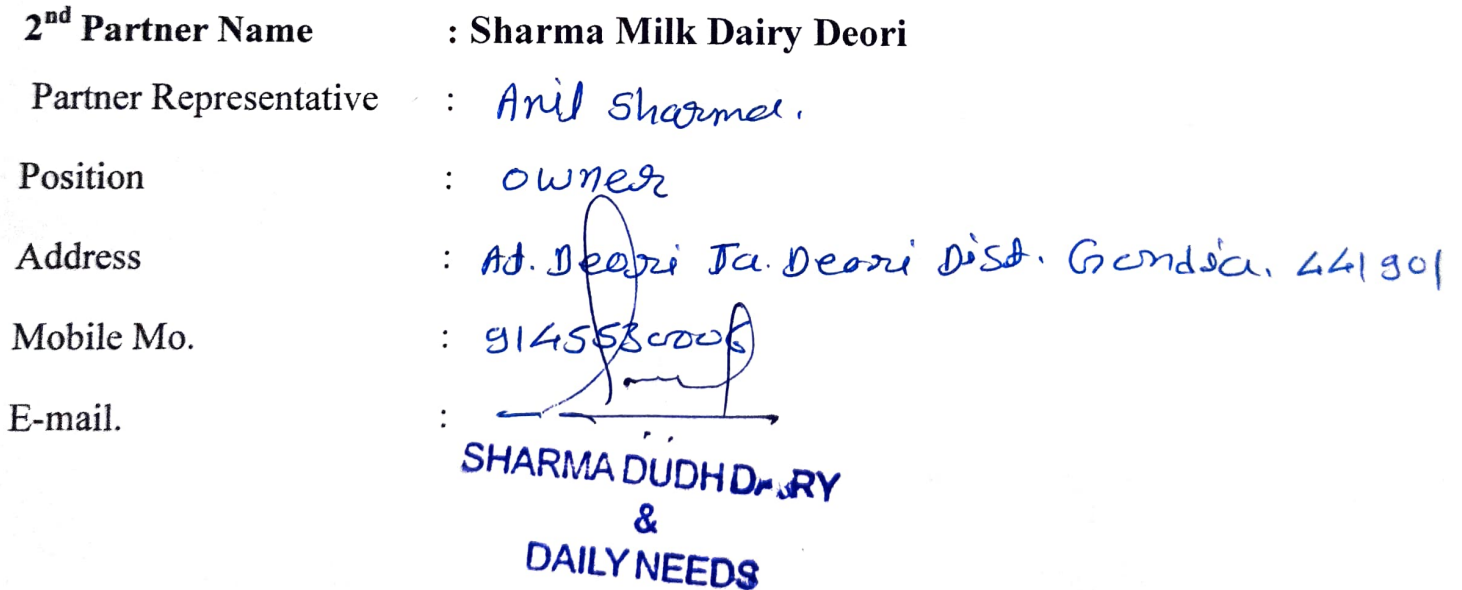 2nd Partner Name : Sharma Milk Dairy Deori
Partner Representative : Anil Sharma.
Position : owner
Address : At. Deori Ta. Deori Dist. Gondia. 441901
Mobile Mo. :
E-mail. :
SHARMA DUDH
&
DAILY NEEDS